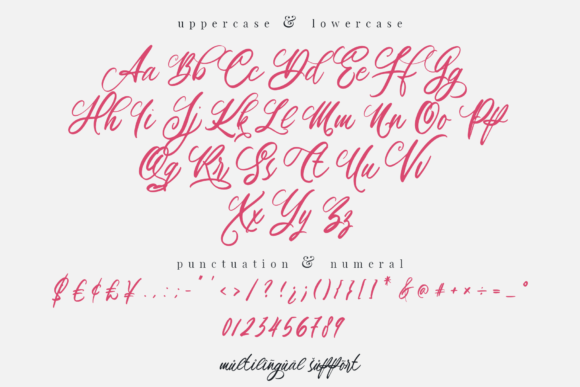 uppercase & lowercase
Aa Bb Cc Dd Ee Ff Gg
Hh Ii Jj Kk Ll Mm Nn Oo Pp
Qq Rr Ss Tt Uu Vv
Xx Yy Zz
punctuation & numeral
$ € ¢ £ ¥ . , : ; - " ' < > / ? ! ¿ ¡ ( ) { } [ ] * & @ # + × ÷ = _ °
0123456789
multilingual support